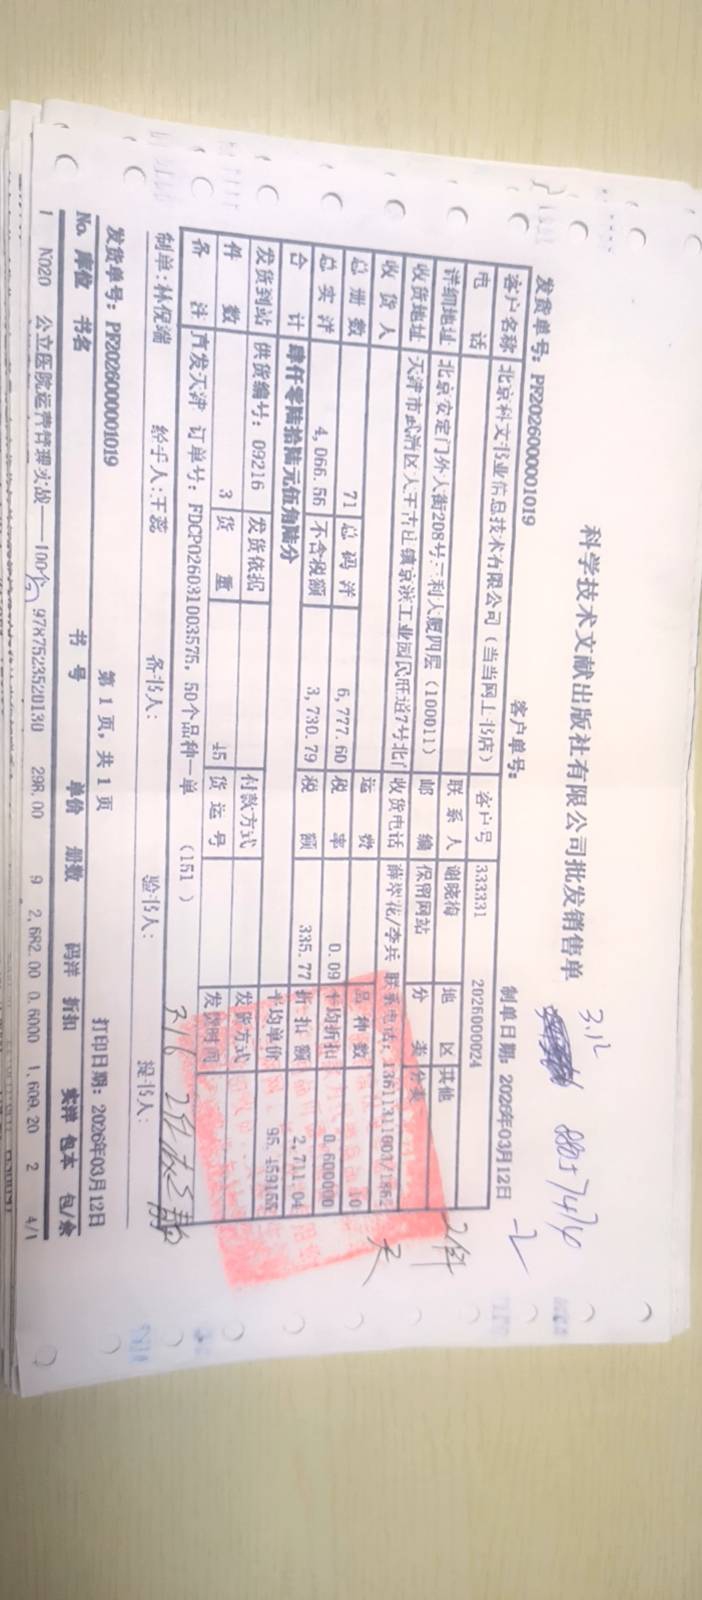 科学技术文献出版社有限公司批发销售单
3.12
88057474
-2
发货单号: PF2026000001019 客户单号: 制单日期: 2026年03月12日
客户名称 北京科文书业信息技术有限公司(当当网上书店) 客户号 333331 2026000024
电 话 联系人 谢晓梅 地 区 其他
详细地址 北京安定门外大街208号三利大厦四层(100011) 邮 编 保留网站 分 类
收货地址 天津市武清区大王古庄镇京滨工业园民旺道7号北门 收货电话 薛翠花/李兵 联系电话: 13611311003/1862
收 货 人 运 费 品 种 数 10
总 册 数 71 总 码 洋 6,777.60 税 率 0.09 平均折扣 0.600000
总 实 洋 4,066.56 不含税额 3,730.79 税 额 335.77 折 扣 额 2,711.04
合 计 肆仟零陆拾陆元伍角陆分 平均单价 95.459155
发货到站 供货编号: 09216 发货依据 付款方式 发货方式
件 数 3 货 重 45 货 运 号 发货时间
备 注 直发天津 订单号: FDCP026031003575, 50个品种一单 (151)
2件
天
3/16 2件
制单: 林倪端 经手人: 王蕊 备书人: 验书人: 提书人:
发货单号: PF2026000001019 第 1 页, 共 1 页 打印日期: 2026年03月12日
No. 库位 书名 书 号 单价 册数 码洋 折扣 实洋 包本 包/余
1 N020 公立医院运营管理实战——100个 9787523520130 298.00 9 2,682.00 0.6000 1,609.20 2 4/1